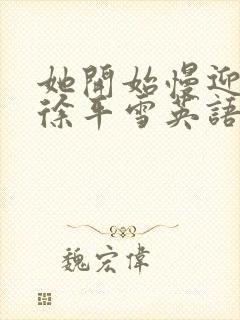 她開始慢迎
徐平雪英語
魏宏偉